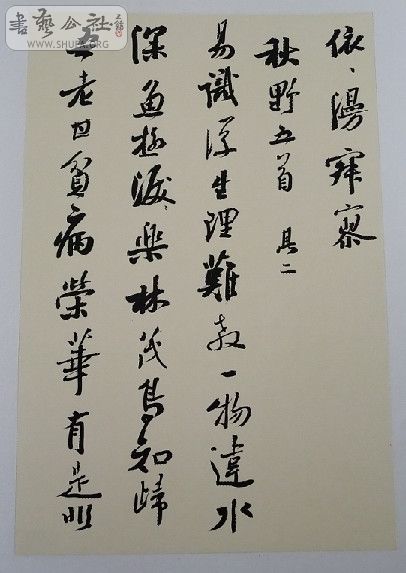 書藝公社
SHU .ORG
依、漫寂寥
秋野五首 其二
易識浮生理難教一物違水
深魚極樂林茂鳥知歸
老甘貧病榮華有是非